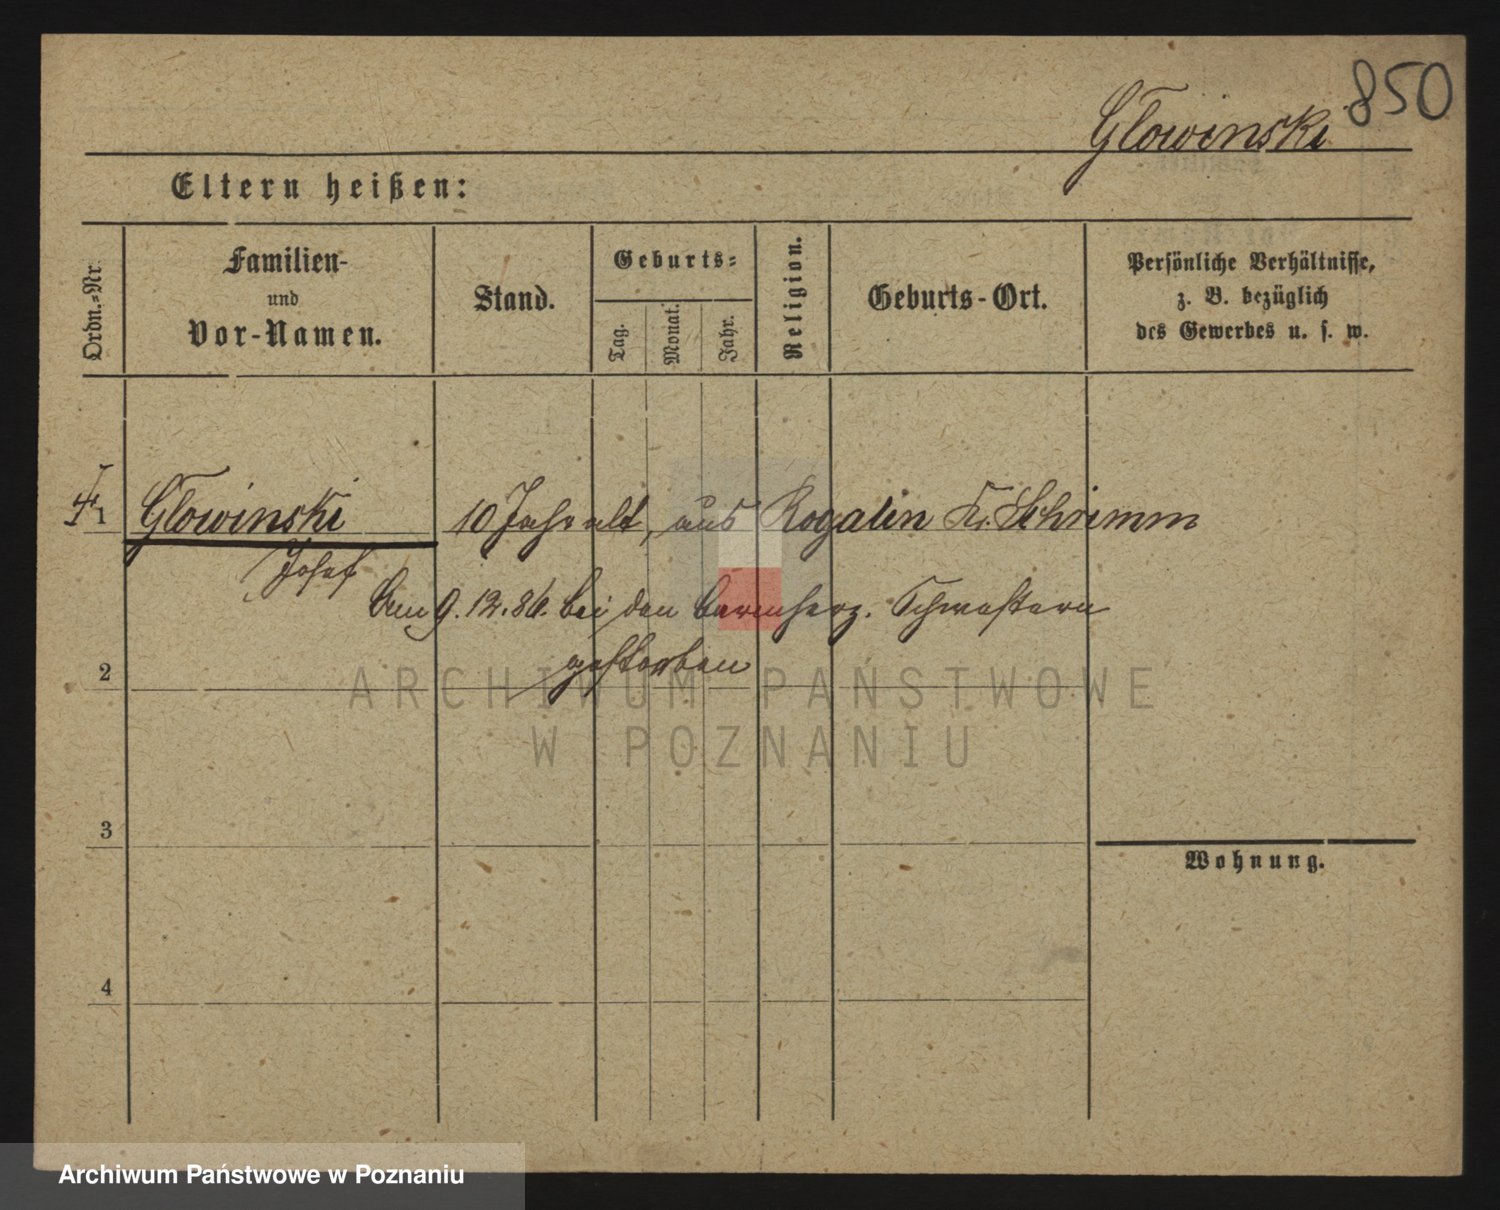 850
Glowinski
Eltern heißen:
Ordn.=Nr.
Familien-
und
Vor-Namen.
Stand.
Geburts=
Tag.
Monat.
Jahr.
Religion.
Geburts-Ort.
Persönliche Verhältnisse,
z. B. bezüglich
des Gewerbes u. s. w.
1 Glowinski 10 Jahr alt, aus Rogalin Kr. Schrimm
Josef
am 9.12.86. bei den barmherz. Schwestern
gestorben
2
3
Wohnung.
4
ARCHIWUM PAŃSTWOWE
W POZNANIU
Archiwum Państwowe w Poznaniu